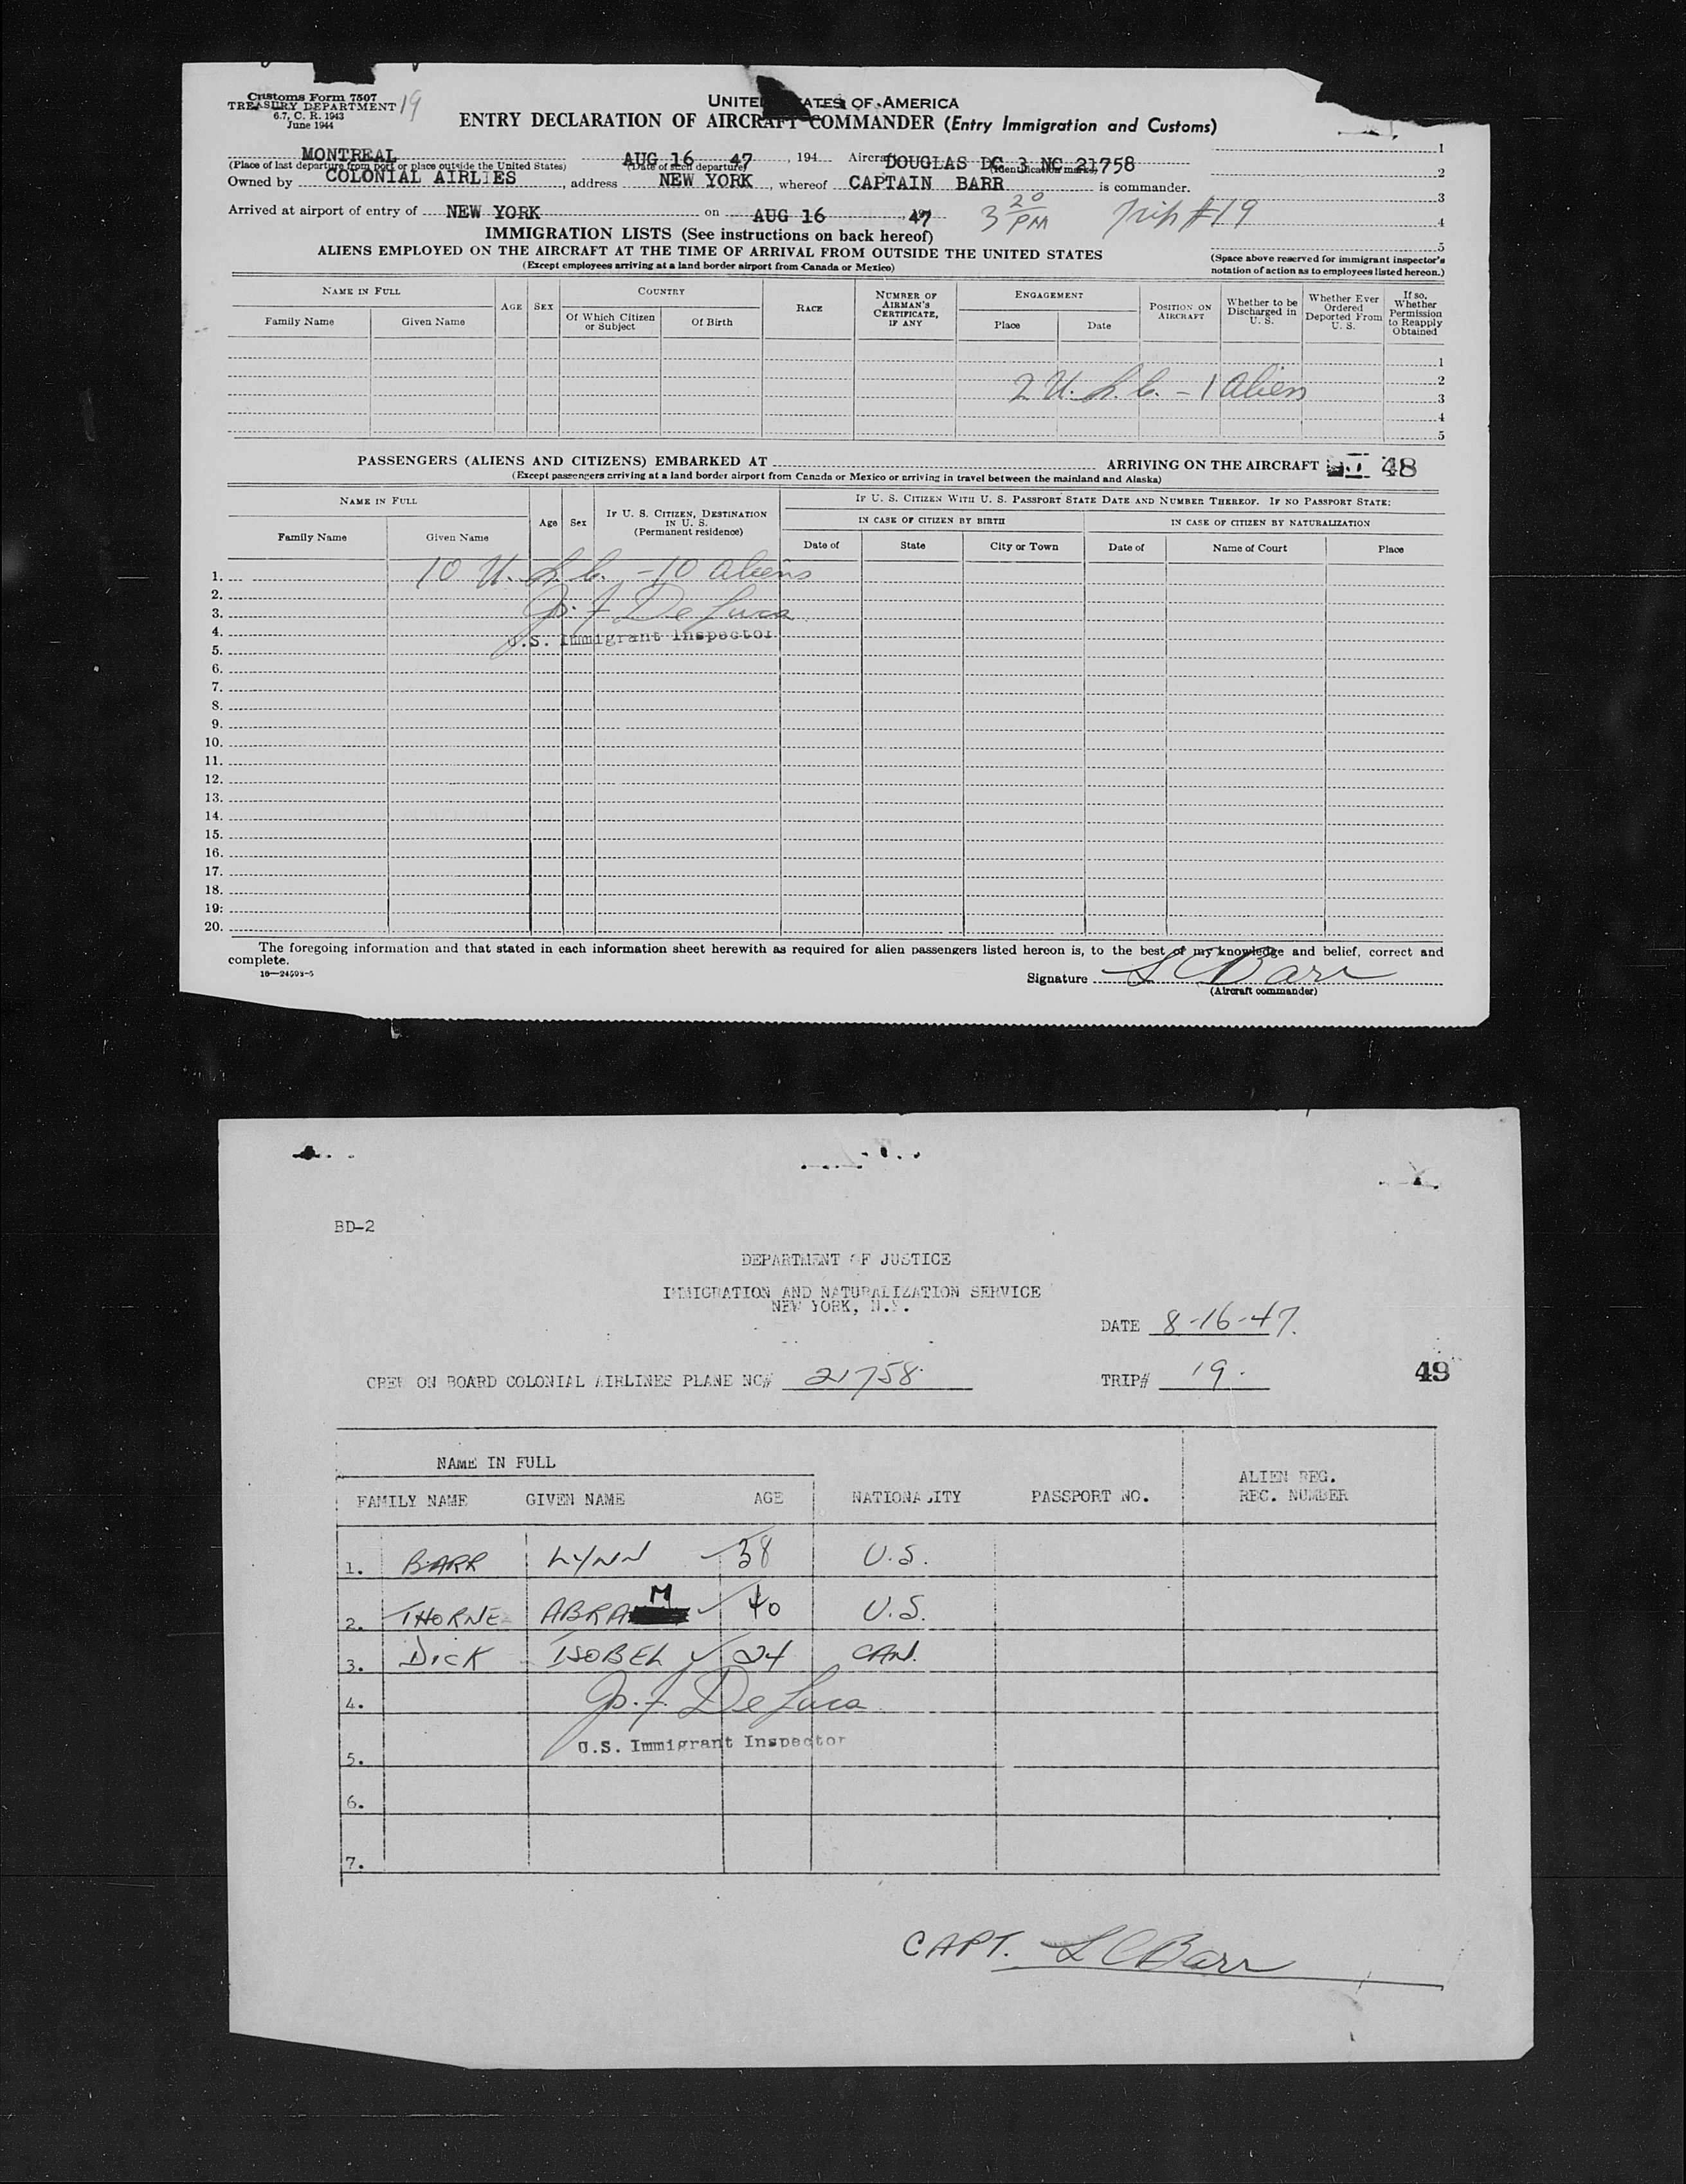 Customs Form 7507
TREASURY DEPARTMENT 19
6.7, C. R. 1943
June 1944
UNITED STATES OF AMERICA
ENTRY DECLARATION OF AIRCRAFT COMMANDER (Entry Immigration and Customs)
MONTREAL AUG 16 47, 194 Aircraft DOUGLAS DC 3 NC 21758
(Place of last departure from port or place outside the United States) (Date of such departure) (Identification marks)
Owned by COLONIAL AIRLIES, address NEW YORK, whereof CAPTAIN BARR is commander.
Arrived at airport of entry of NEW YORK on AUG 16 47 3 20 PM Trip #19
1
2
3
4
5
IMMIGRATION LISTS (See instructions on back hereof)
ALIENS EMPLOYED ON THE AIRCRAFT AT THE TIME OF ARRIVAL FROM OUTSIDE THE UNITED STATES
(Except employees arriving at a land border airport from Canada or Mexico)
(Space above reserved for immigrant inspector's notation of action as to employees listed hereon.)
NAME IN FULL AGE SEX COUNTRY RACE NUMBER OF AIRMAN'S CERTIFICATE, IF ANY ENGAGEMENT POSITION ON AIRCRAFT Whether to be Discharged in U. S. Whether Ever Ordered Deported From U. S. If so, Whether Permission to Reapply Obtained
Family Name Given Name Of Which Citizen or Subject Of Birth Place Date
1
2
2 U. S. C. - 1 Alien
3
4
5
PASSENGERS (ALIENS AND CITIZENS) EMBARKED AT ARRIVING ON THE AIRCRAFT 48
(Except passengers arriving at a land border airport from Canada or Mexico or arriving in travel between the mainland and Alaska)
NAME IN FULL Age Sex IF U. S. CITIZEN, DESTINATION IN U. S. (Permanent residence) IF U. S. CITIZEN WITH U. S. PASSPORT STATE DATE AND NUMBER THEREOF. IF NO PASSPORT STATE:
IN CASE OF CITIZEN BY BIRTH IN CASE OF CITIZEN BY NATURALIZATION
Family Name Given Name Date of State City or Town Date of Name of Court Place
1. 10 U. S. C. - 10 aliens
2.
3. Jo. F. De Luca
4. U.S. Immigrant Inspector
5.
6.
7.
8.
9.
10.
11.
12.
13.
14.
15.
16.
17.
18.
19.
20.
The foregoing information and that stated in each information sheet herewith as required for alien passengers listed hereon is, to the best of my knowledge and belief, correct and
complete.
16—24693-5
Signature L C Barr
(Aircraft commander)
BD-2
DEPARTMENT OF JUSTICE
IMMIGRATION AND NATURALIZATION SERVICE
NEW YORK, N.Y.
DATE 8-16-47.
CREW ON BOARD COLONIAL AIRLINES PLANE NC# 21758. TRIP# 19. 49
NAME IN FULL
FAMILY NAME GIVEN NAME AGE NATIONALITY PASSPORT NO. ALIEN REG. REC. NUMBER
1. BARR LYNN 38 U.S.
2. THORNE ABRAM 40 U.S.
3. DICK ISOBEL 24 CAN.
4. Jo. F. De Luca
5. U.S. Immigrant Inspector
6.
7.
CAPT. L C Barr